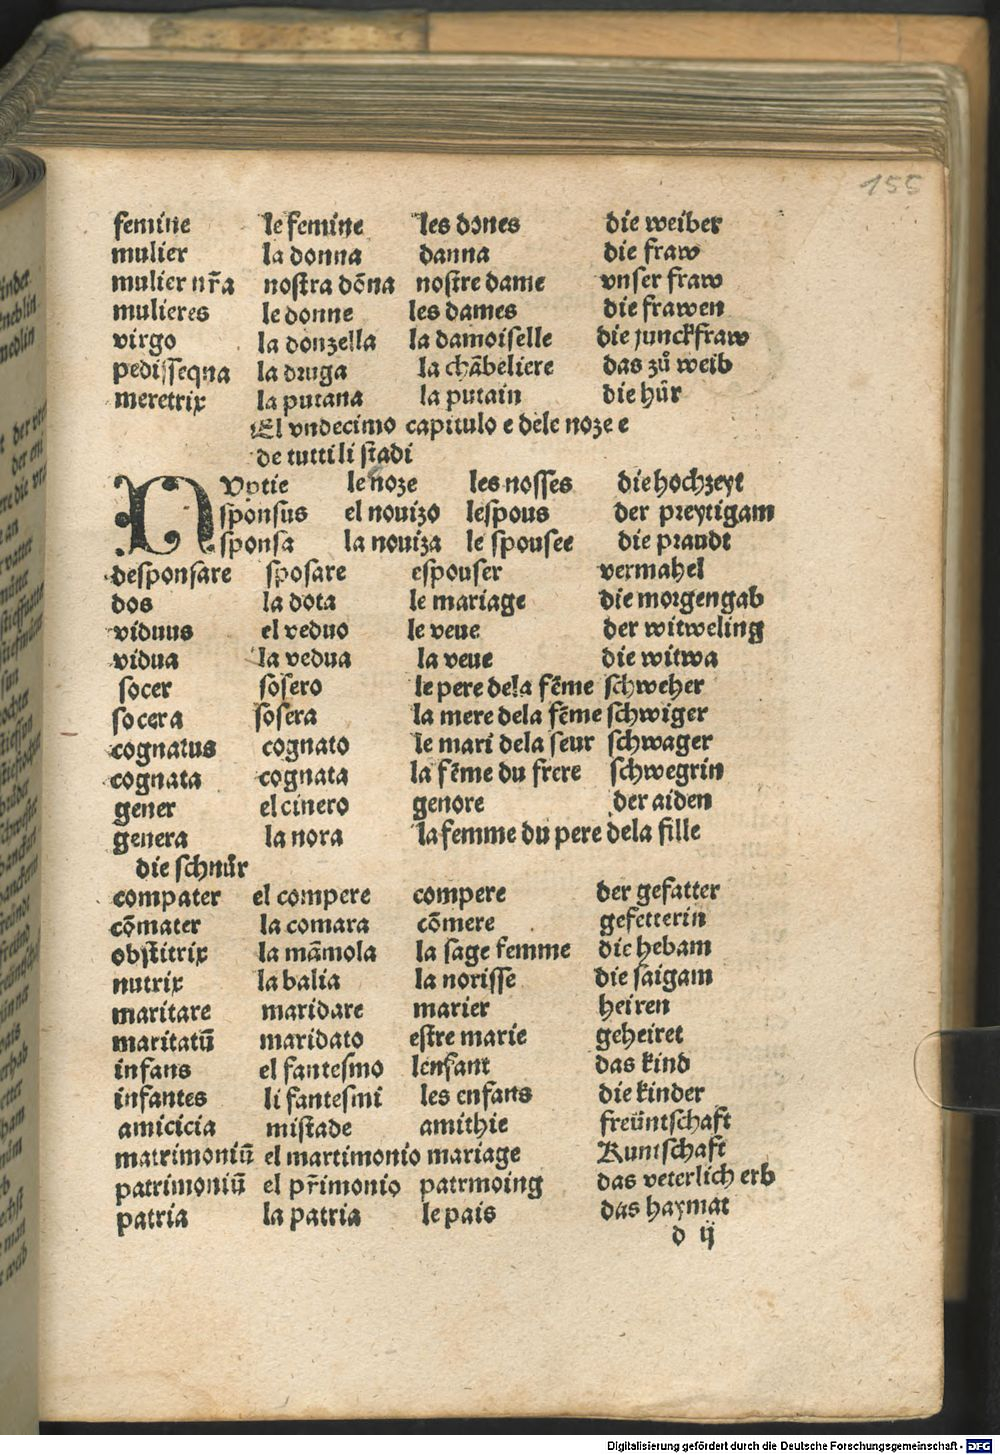 155
femine le femine les dones die weiber
mulier la donna danna die fraw
mulier nr̃a nostra dõna nostre dame vnser fraw
mulieres le donne les dames die frawen
virgo la donzella la damoiselle die junckfraw
pedisseqna la druga la chãbeliere das zuͦ weib
meretrix la putana la putain die huͤr
El vndecimo capitulo e dele noze e
de tutti li stadi
NVptie le noze les nosses die hochzeyt
sponsus el nouizo lespous der preytigam
sponsa la nouiza le spousee die praudt
desponsare sposare espouser vermahel
dos la dota le mariage die morgengab
viduus el veduo le veue der witweling
vidua la vedua la veue die witwa
socer sosero le pere dela fẽme schweher
socera sosera la mere dela fẽme schwiger
cognatus cognato le mari dela seur schwager
cognata cognata la fẽme du frere schwegrin
gener el cinero genore der aiden
genera la nora la femme du pere dela fille
die schnuͤr
compater el compere compere der gefatter
cõmater la comara cõmere gefetterin
obstitrix la mãmola la sage femme die hebam
nutrix la balia la norisse die saigam
maritare maridare marier heiren
maritatũ maridato estre marie geheiret
infans el fantesmo lenfant das kind
infantes li fantesmi les enfans die kinder
amicicia mistade amithie freüntschaft
matrimoniũ el martimonio mariage Kuntschaft
patrimoniũ el pr̃imonio patrmoing das veterlich erb
patria la patria le pais das haymat
d ij
Digitalisierung gefördert durch die Deutsche Forschungsgemeinschaft - DFG